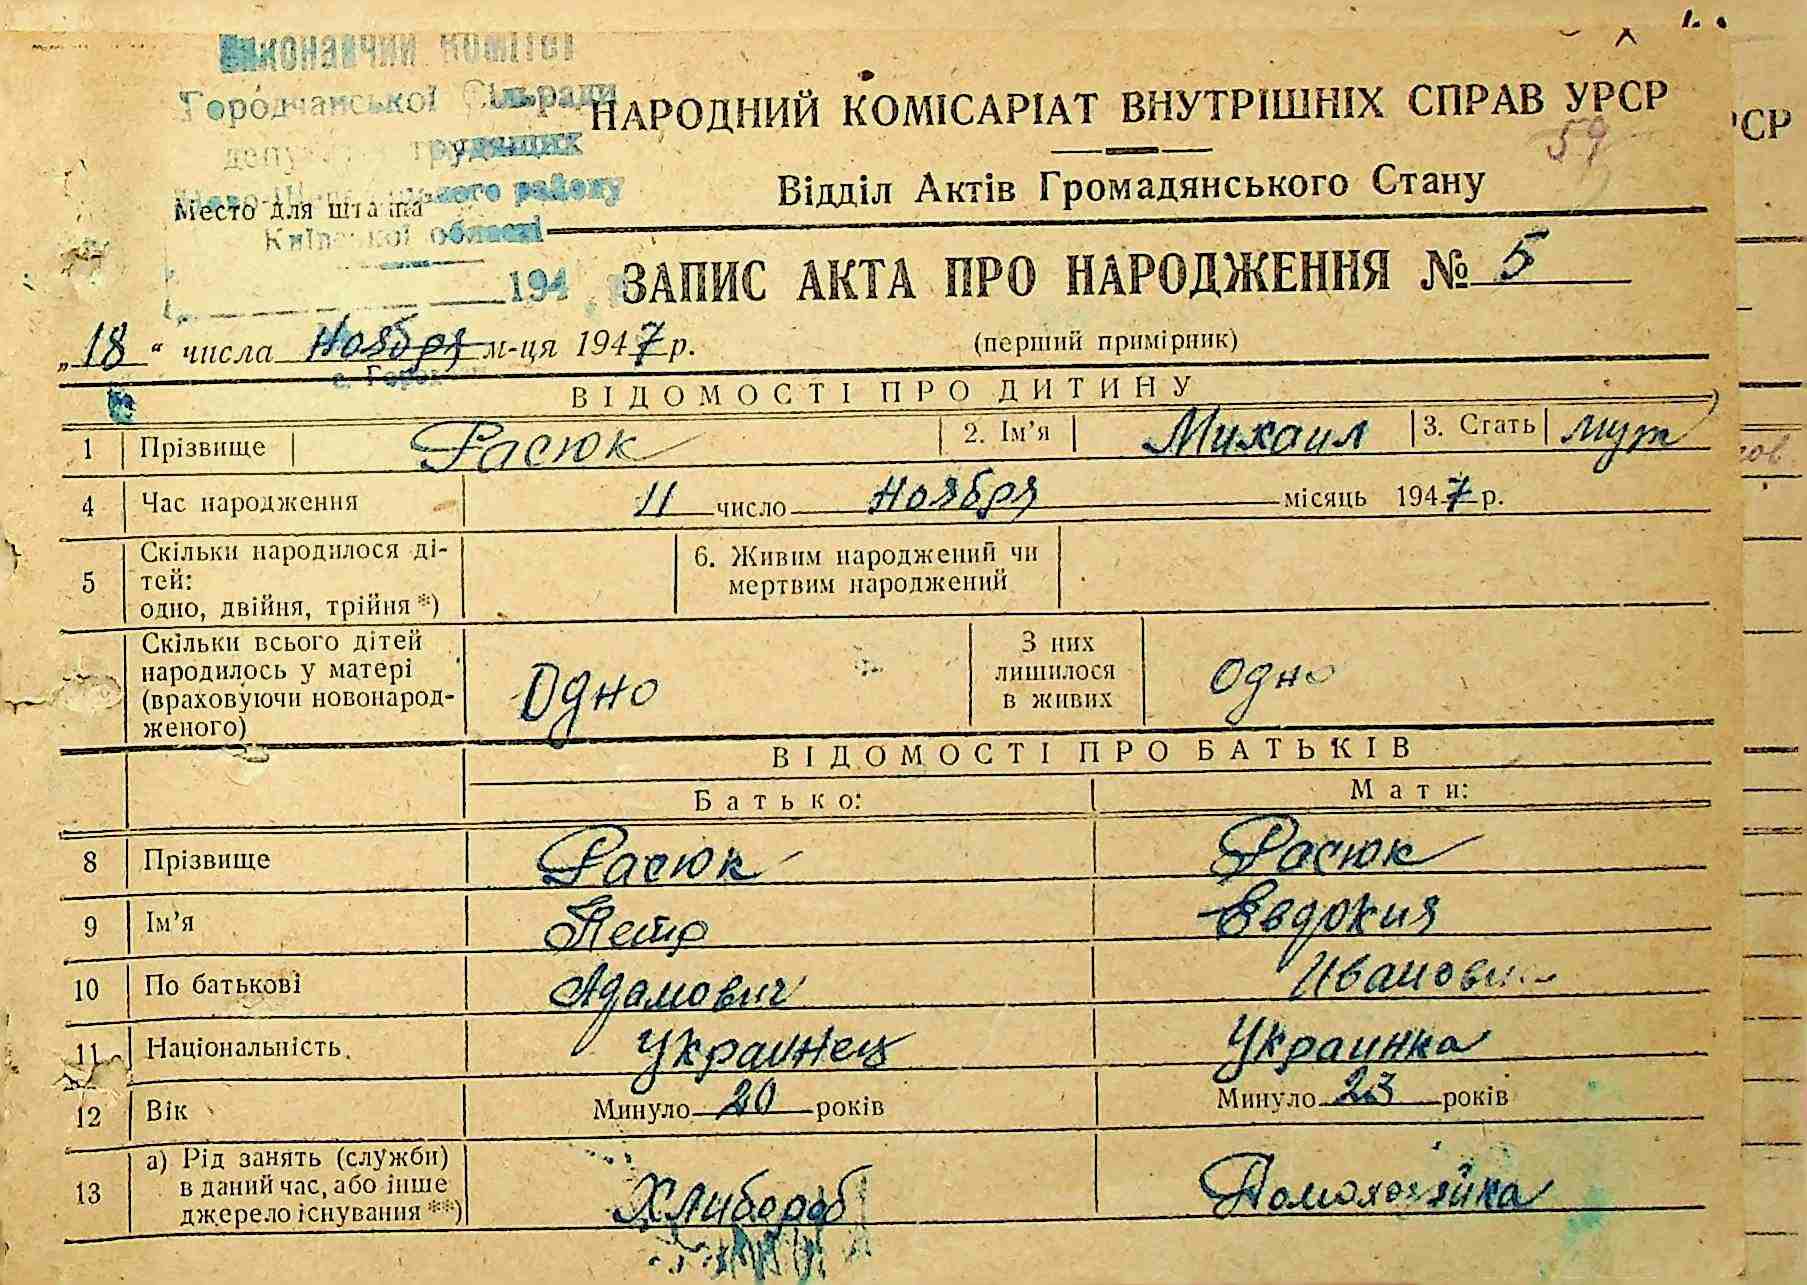 Виконавчий комітет
Городчанської Сільради
трудящих
району
Київської області
194
НАРОДНИЙ КОМІСАРІАТ ВНУТРІШНІХ СПРАВ УРСР
59
Відділ Актів Громадянського Стану
Место для штампа
ЗАПИС АКТА ПРО НАРОДЖЕННЯ № 5
„18“ числа Ноября м-ця 1947 р. (перший примірник)
ВІДОМОСТІ ПРО ДИТИНУ
1 Прізвище Расюк 2. Ім’я Михаил 3. Стать муж
4 Час народження 11 число Ноября місяць 1947 р.
5 Скільки народилося ді-
тей:
одно, двійня, трійня *)
6. Живим народжений чи
мертвим народжений
Скільки всього дітей
народилось у матері
(враховуючи новонарод-
женого)
Одно
З них
лишилося
в живих
Одно
ВІДОМОСТІ ПРО БАТЬКІВ
Батько: Мати:
8 Прізвище Расюк Расюк
9 Ім’я Петр Евдокия
10 По батькові Адамович Ивановна
11 Національність Украинец Украинка
12 Вік Минуло 20 років Минуло 23 років
13 а) Рід занять (служби)
в даний час, або інше
джерело існування **)
Хлибороб Домохозяйка
РСР